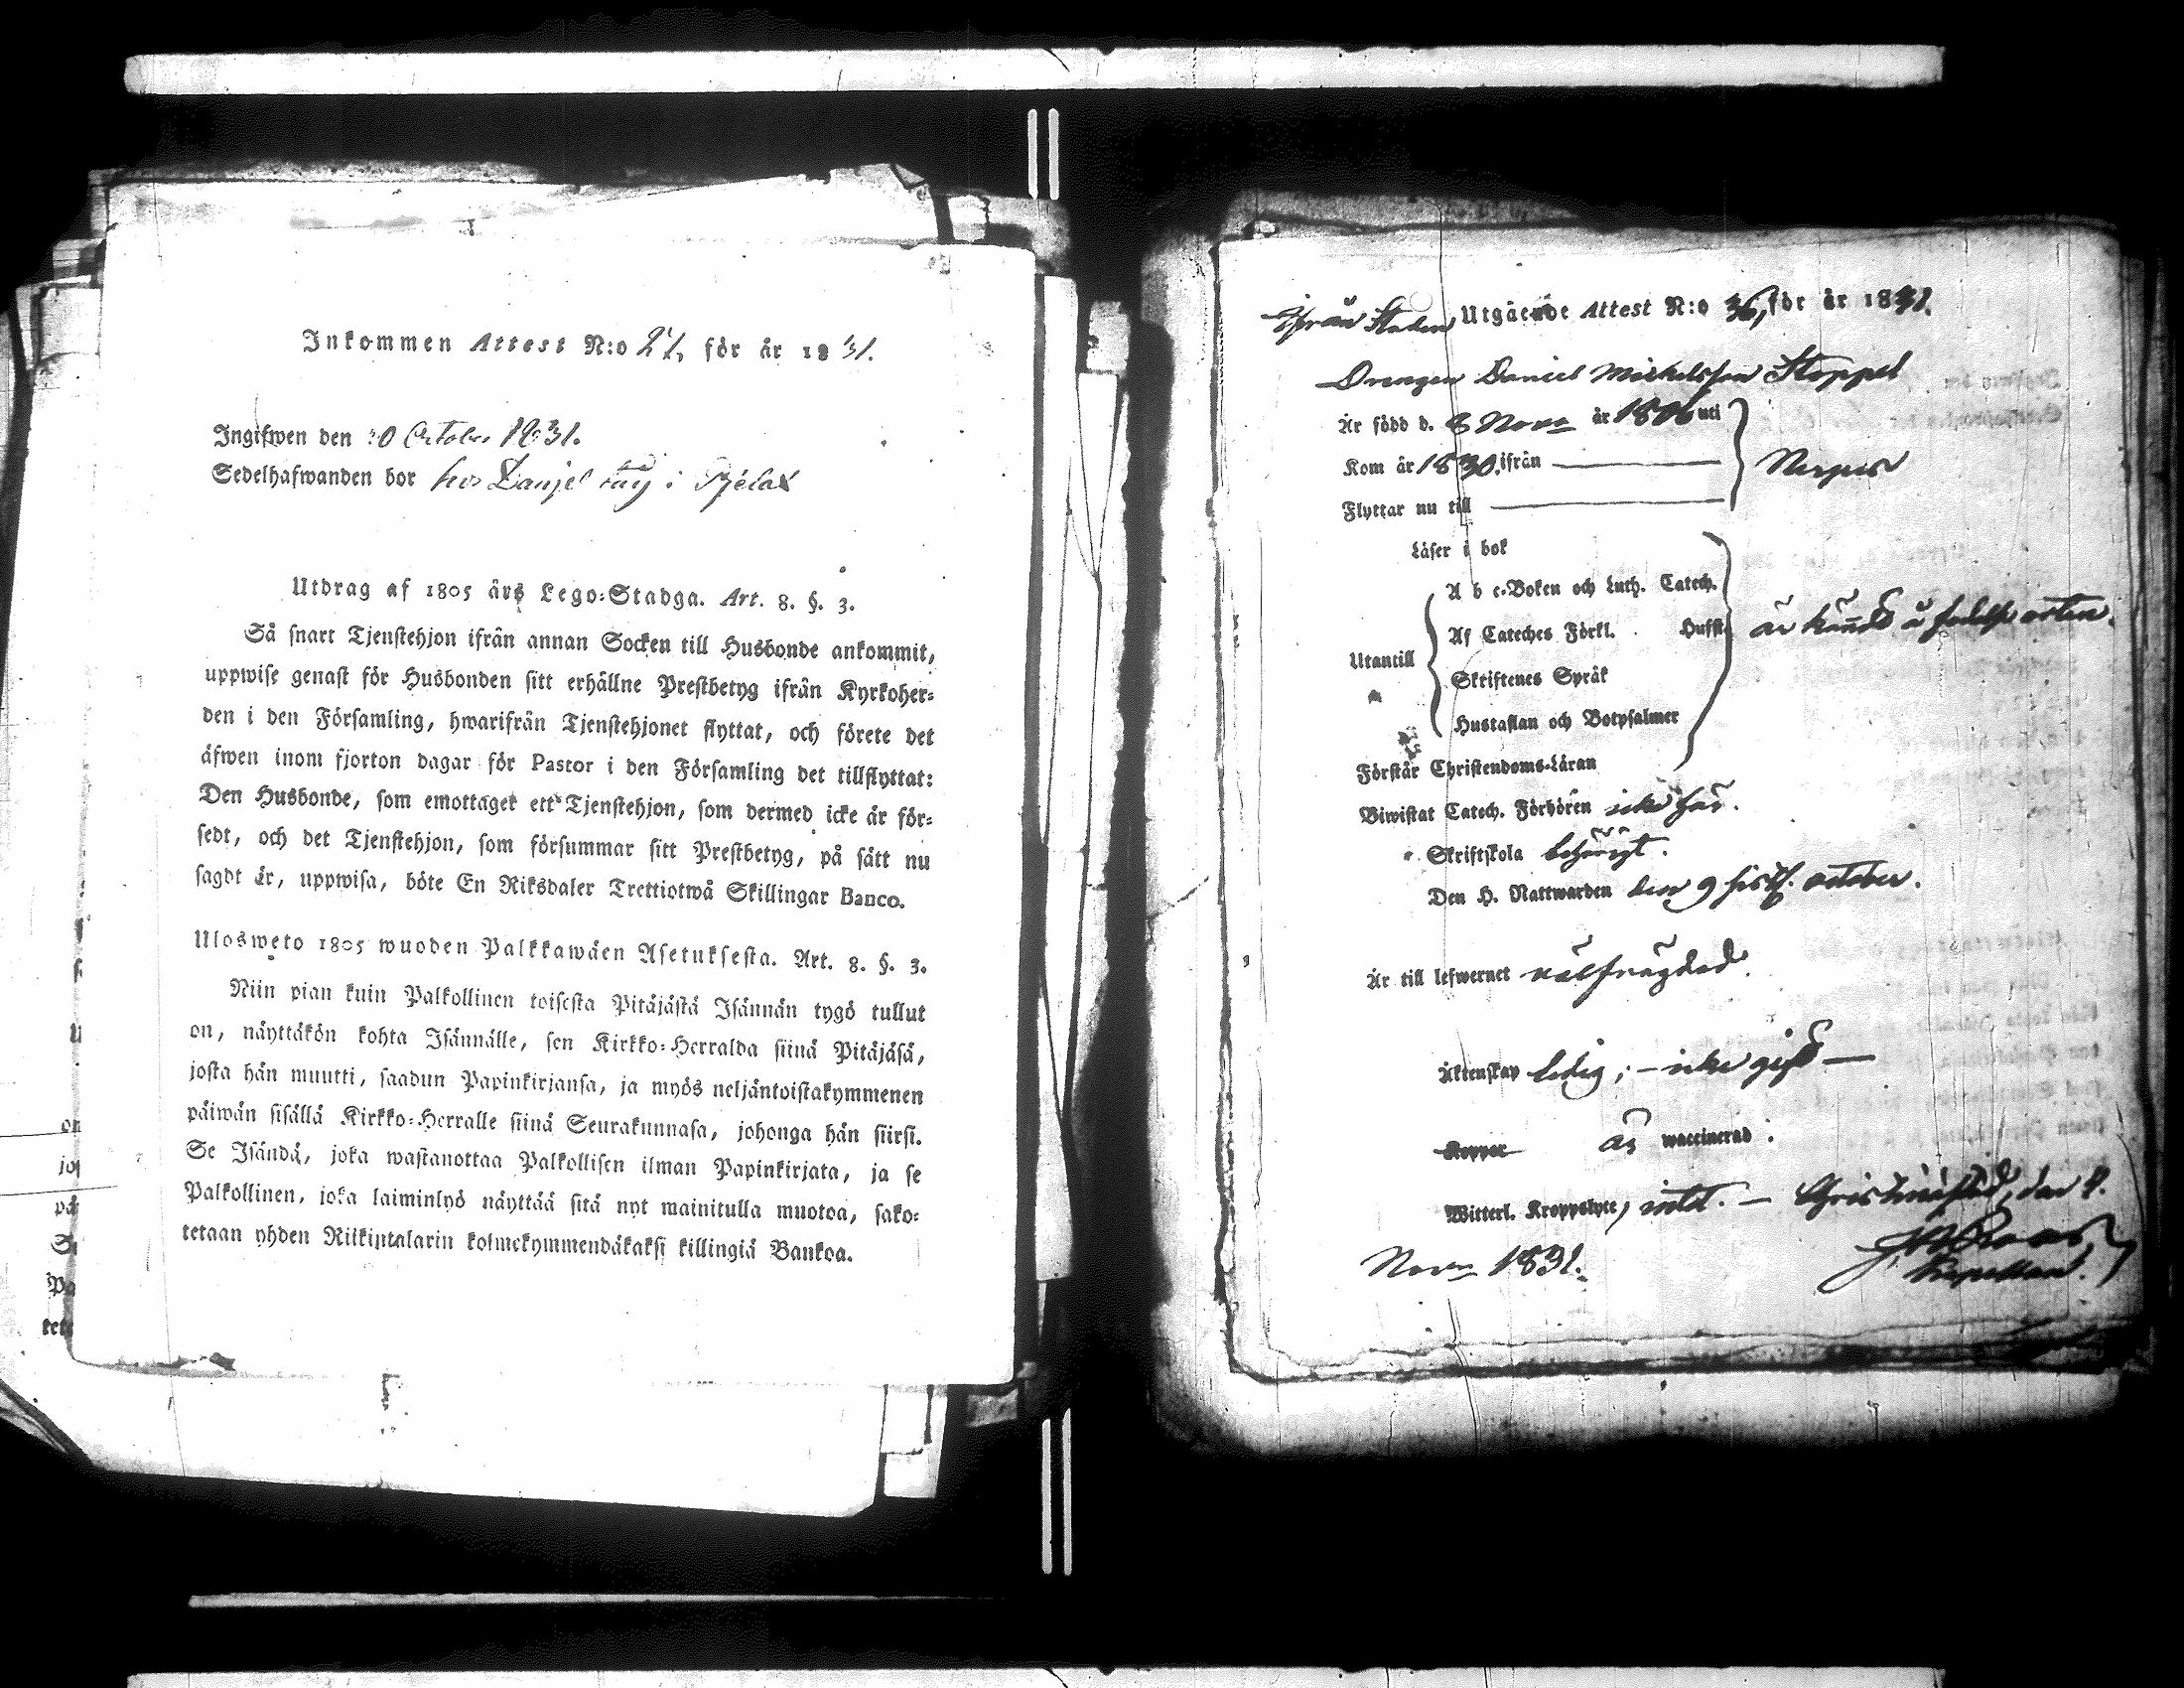 Inkommen Attest N:o 27, för år 1831.
Ingifwen den 20 October 1831.
Sedelhafwanden bor hos Danjel i Pjelax
Utdrag af 1805 års Lego-Stadga. Art. 8. §. 3.
Så snart Tjenstehjon ifrån annan Socken till Husbonde ankommit,
uppwise genast för Husbonden sitt erhållne Prestbetyg ifrån Kyrkoher-
den i den Församling, hwarifrån Tjenstehjonet flyttat, och förete det
äfwen inom fjorton dagar för Pastor i den Församling det tillflyttat:
Den Husbonde, som emottaget ett Tjenstehjon, som dermed icke är för-
sedt, och det Tjenstehjon, som försummar sitt Prestbetyg, på sätt nu
sagdt är, uppwisa, böte En Riksdaler Trettiotwå Skillingar Banco.
Ulosweto 1805 wuoden Palkkawäen Asetuksesta. Art. 8. §. 3.
Niin pian kuin Palkollinen toisesta Pitäjästä Isännän tygö tullut
on, näyttäkön kohta Isännälle, sen Kirkko-Herralda siinä Pitäjäsä,
josta hän muutti, saadun Papinkirjansa, ja myös neljäntoistakymmenen
päiwän sisällä Kirkko-Herralle siinä Seurakunnasa, johonga hän siirsi.
Se Isändä, joka wastanottaa Palkollisen ilman Papinkirjata, ja se
Palkollinen, joka laiminlyö näyttää sitä nyt mainitulla muotoa, sako-
tetaan yhden Riikintalarin kolmekymmendäkaksi killingiä Bankoa.
ifrån Staden Utgående Attest N:o 36, för år 1831.
Drengen Daniel Michelsson Stoppel
Är född d. 8 Nov. år 1806 uti
Kom år 1830 ifrån
Nerpes
Flyttar nu till
Läser i bok
A b c-Boken och Luth. Catech.
Af Cateches Förkl. Hufst. är känd å födelse orten.
Utantill
Skriftenes Språk
Hustaflan och Botpsalmer
Förstår Christendoms-Läran
Biwistat Catech. Förhören icke här.
Skriftskola behörigt.
Den H. Nattwarden den 9 sistl. october.
Är till lefwernet välfrägdad.
Äktenskap ledig; - icke gift —
Koppor är waccinerad.
Witterl. Kroppslyte, intet. — Christinæstad, den 4.
Nov. 1831.
Capellan.